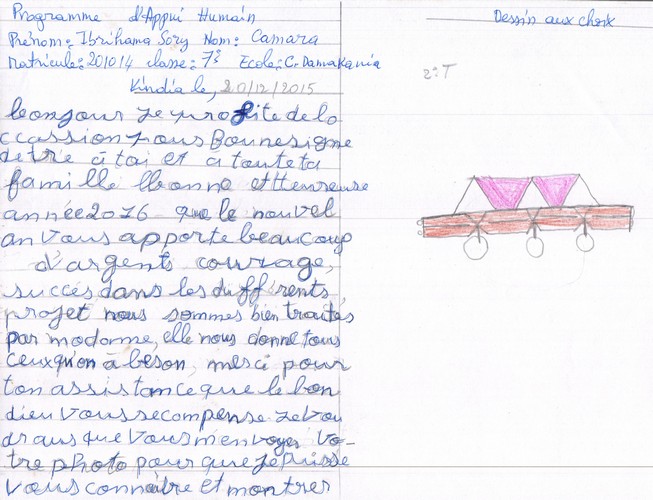 Programme d'Appui Humain
Prénom: Ibrihama Sory Nom: Camara
Matricule: 201014 classe: 7è Ecole: C. Damakania
Kindia le, 20/12/2015
bonjour Je profite de lo
ccassion pous Bounesigne
detre à tai et à touteta
famille Bonne et Heureuse
année 2016 que le nouvel
an Vous apporte beaucoup
d'argents courage,
succès dans les différents
projet nous sommes bien traités
par madame, elle nous donne tous
ceux qu'on à beson, merci pour
ton assistance que le bon
dieu Vous secompense. Je Vou
draus que Vous m'en voyes Vo-
tre photo pour que Je Puisse
Vous connaître et montrer
Dessin aux choix
2è T